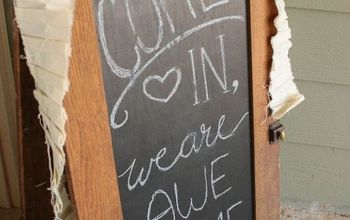 COME
IN,
we are
AWE
ME